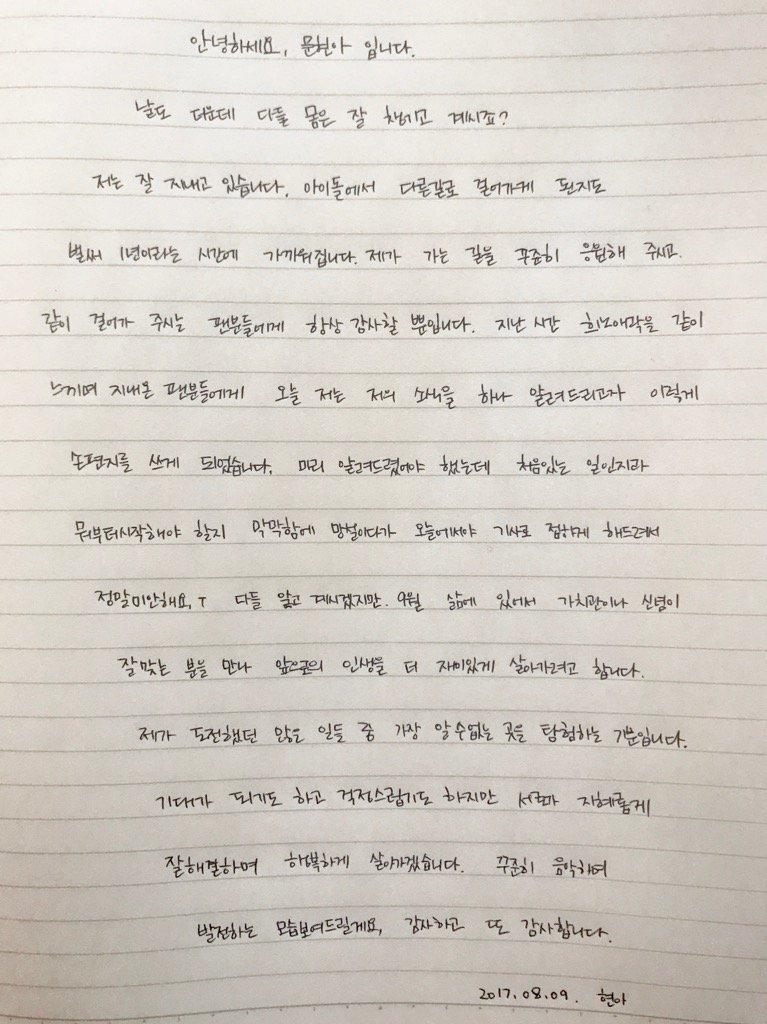 안녕하세요, 문현아 입니다.
날도 더운데 다들 몸은 잘 챙기고 계시죠?
저는 잘 지내고 있습니다. 아이돌에서 다른길로 걸어가게 된지도
벌써 1년이라는 시간에 가까워집니다. 제가 가는 길을 꾸준히 응원해 주시고.
같이 걸어가 주시는 팬분들에게 항상 감사할 뿐입니다. 지난 시간 희노애락을 같이
느끼며 지내온 팬분들에게 오늘 저는 저의 소식을 하나 알려드리고자 이렇게
손편지를 쓰게 되었습니다. 미리 알려드렸어야 했는데 처음있는 일인지라
뭐부터시작해야 할지 막막함에 망설이다가 오늘에서야 기사로 접하게 해드려서
정말미안해요.ㅜ 다들 알고 계시겠지만. 9월 삶에 있어서 가치관이나 신념이
잘맞는 분을 만나 앞으로의 인생을 더 재미있게 살아가려고 합니다.
제가 도전했던 많은 일들 중 가장 알수없는 곳을 탐험하는 기분입니다.
기대가 되기도 하고 걱정스럽기도 하지만 서로가 지혜롭게
잘해결하며 행복하게 살아가겠습니다. 꾸준히 음악하며
발전하는 모습보여드릴게요, 감사하고 또 감사합니다.
2017.08.09. 현아